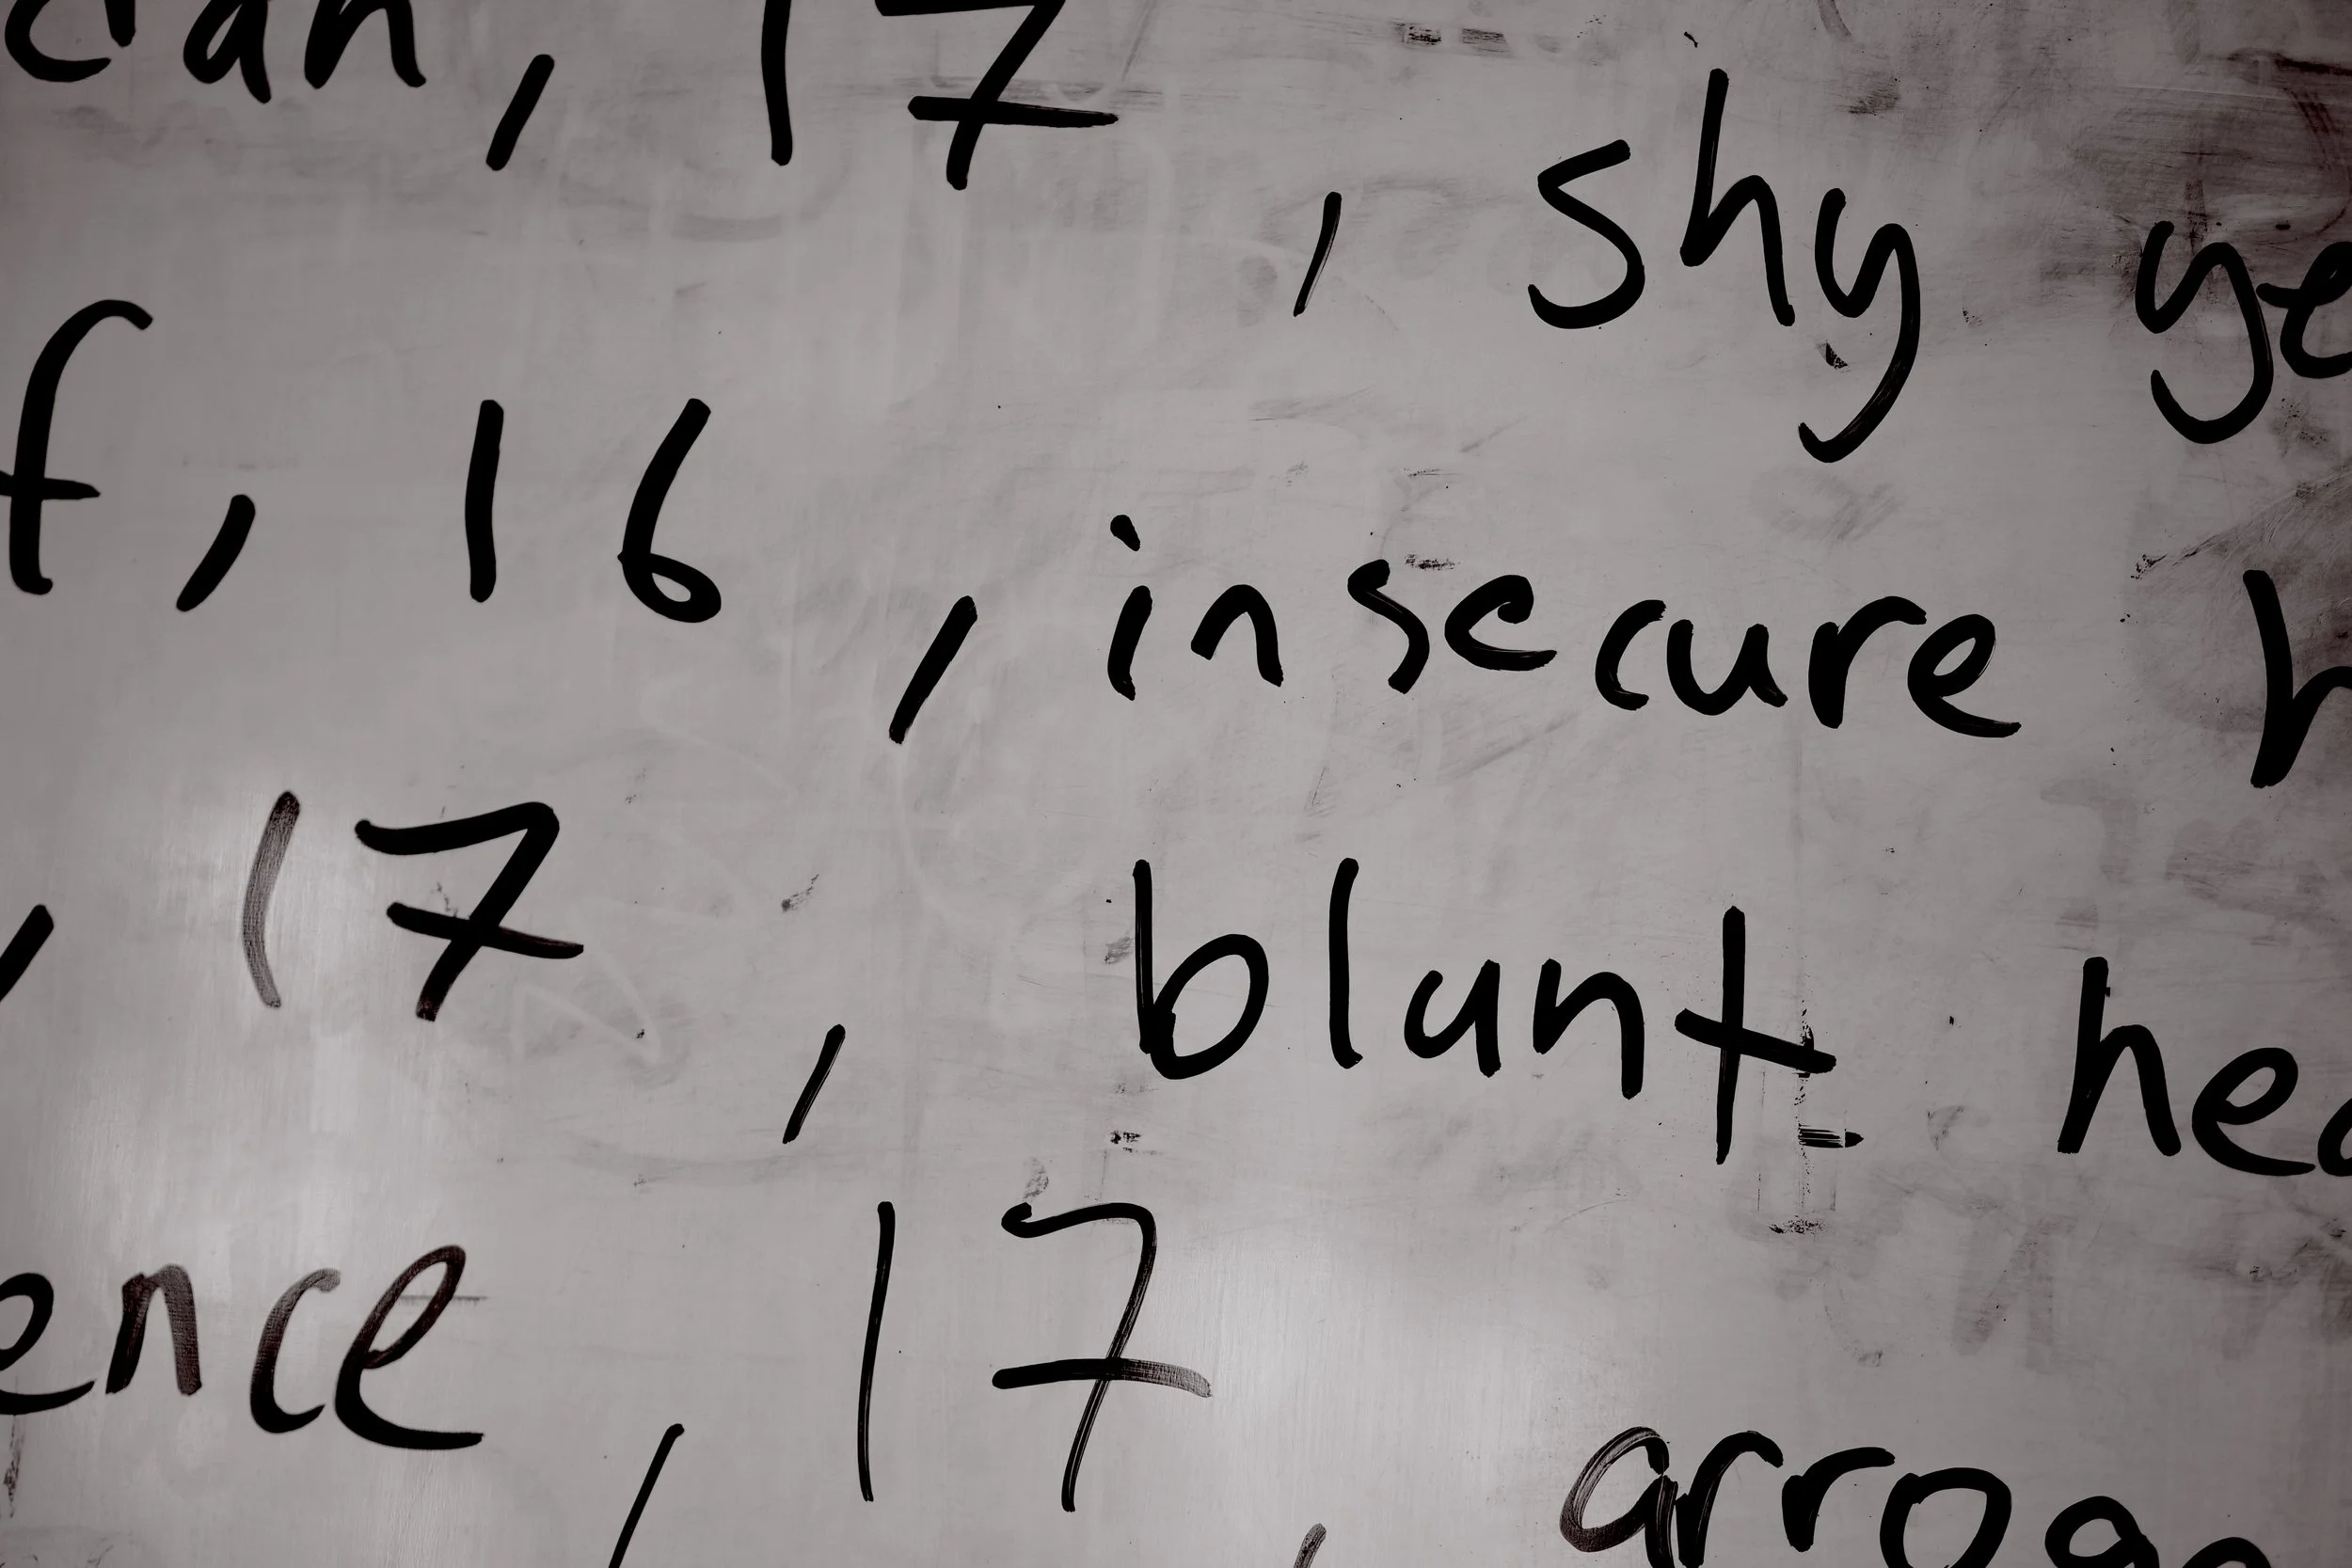 cian, 17, shy ye
f, 16, insecure h
, 17, blunt hea
ence, 17, arroga